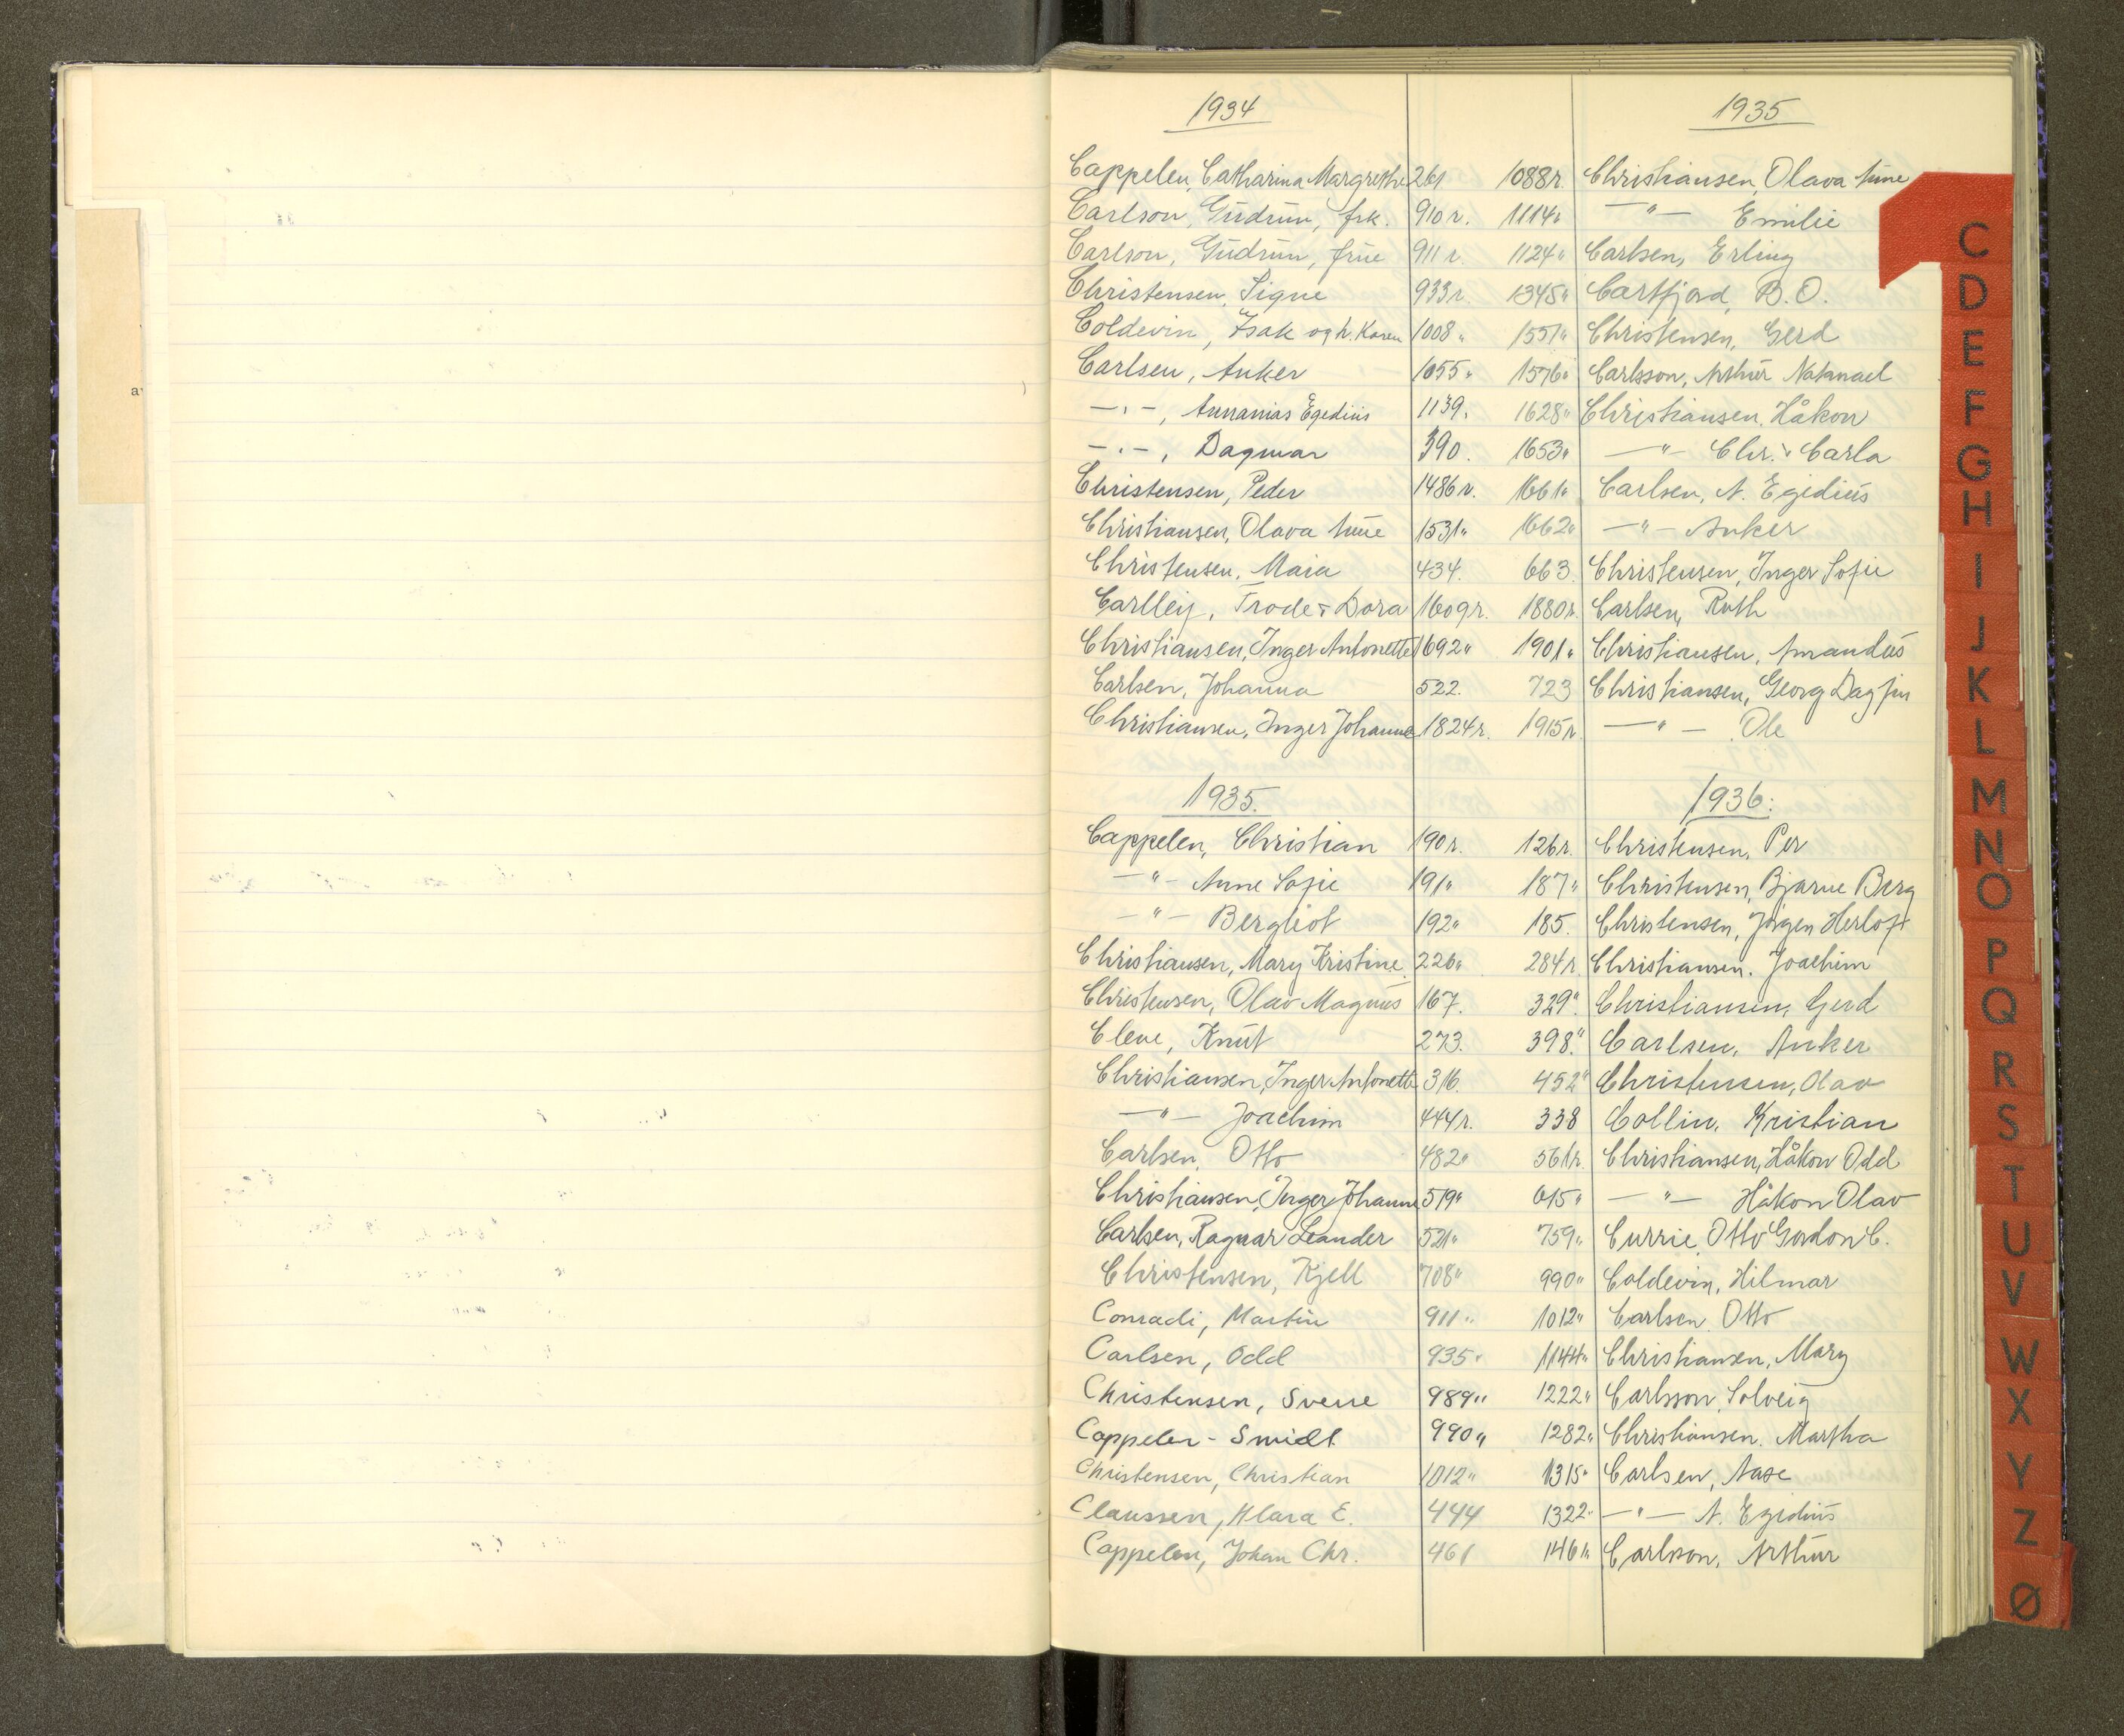 1934
Cappelen, Catharina Margrethe 261
Carlson, Gudrun, frk. 910 r.
Carlson, Gudrun, frue 911 r.
Christensen, Signe 933 r.
Coldevin, Isak og h. Karen 1008 "
Carlsen, Anker 1055 "
—"—, Annanias Egedius 1139.
—"—, Dagmar 390.
Christensen, Peder 1486 r.
Christiansen, Olava Tune 1531 "
Christensen, Maia 434.
Carlley, Frode & Dora 1609 r.
Christiansen, Inger Antonette 1692 "
Carlsen, Johanna 522.
Christiansen, Inger Johanne 1824 r.
1935.
Cappelen, Christian 190 r.
—"— Anne Sofie 191 "
—"— Bergliot 192 "
Christiansen, Mary Kristine 226 "
Christensen, Olav Magnus 167.
Cleve, Knut 273.
Christiansen, Inger Antonette 316.
—"— Joachim 444 r.
Carlsen, Otto 482 "
Christiansen, Inger Johanne 519 "
Carlsen, Ragnar Leander 521 "
Christensen, Kjell 708 "
Conradi, Martin 911 "
Carlsen, Odd 935 "
Christensen, Sverre 989 "
Cappelen-Smidt 990 "
Christensen, Christian 1012 "
Claussen, Klara E. 444
Cappelen, Johan Chr. 461
1935
1088 r. Christiansen, Olava Tune
1114 " —"— Emilie
1124 " Carlsen, Erling
1345 " Cartfjord, B. O.
1551 " Christensen, Gerd
1576 " Carlsson, Arthur Natanael
1628 " Christiansen, Håkon
1653 " —"— Chr. & Carla
1661 " Carlsen, A. Egedius
1662 " —"— Anker
663. Christensen, Inger Sofie
1880 r. Carlsen, Ruth
1901 " Christiansen, Amandus
723 Christiansen, Georg Dagfin
1915 r. —"— Ole
1936:
126 r. Christensen, Per
187 " Christensen, Bjarne Berg
185. Christensen, Jörgen Herlof
284 r. Christiansen, Joachim
329 " Christiansen, Gerd
398 " Carlsen, Anker
452 " Christensen, Olav
338 Collin, Kristian
561 r. Christiansen, Håkon Odd
615 " —"— Håkon Olav
759 " Currie, Otto Gordon C.
990 " Coldevin, Hilmar
1012 " Carlsen, Otto
1144 " Christiansen, Mary
1222 " Carlsson, Solveig
1282 " Christiansen, Martha
1315 " Carlsen, Aase
1322 " —"— A. Egedius
1461 " Carlsson, Arthur
C
D
E
F
G
H
I
J
K
L
M
N
O
P
Q
R
S
T
U
V
W
X
Y
Z
Ø